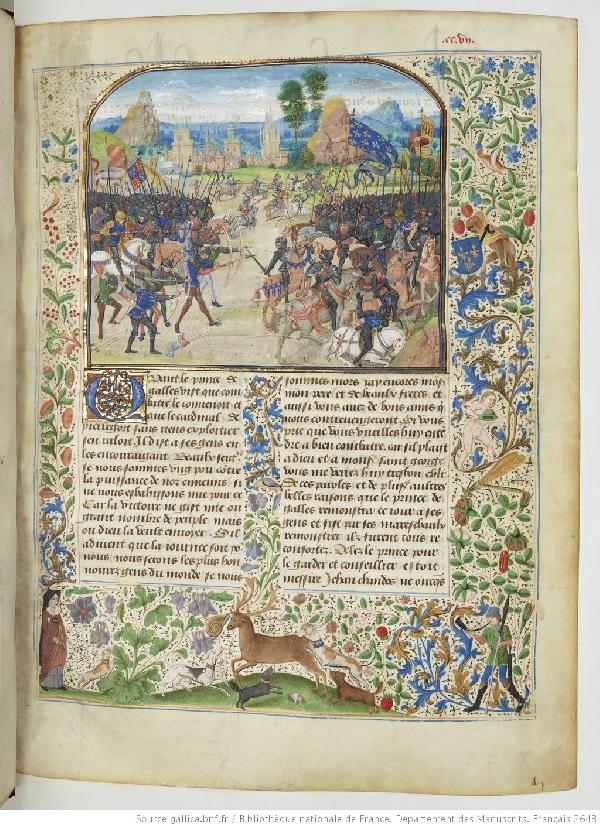 .cc.vij.
Quant le prince de
galles vist que com
batre le convenoit et
que le cardinal de
pierregort sans riens exploittier
sen raloit Il dist a ses gens en
les encouraigant Beaulx seigrs
se nous sommes ung pou contre
la puissance de noz ennemis si
ne nous esbahissons mie pour ce
Car la victoire ne gist mie ou
grant nombre de peuple mais
ou dieu la veult envoyer Sil
advient que la journee soit po
nous nous serons les plus hon
nourez gens du monde se nous
sommes mors jay encores mos
mon pere et de beaulx freres et
aussi vous avez de bons amis q
nous contrevengeront Si vous
prie que vous vueilles huy enten
dre a bien combatre car sil plaist
a dieu et a monsr saint george
vous me verrez huy bon chlr
De ces paroles et de plusrs autres
belles raisons que le prince de
galles remonstra ce jour a ses
gens et fist par ses mareschaulx
remonstrer ilz furent tous re
confortez Delez le prince pour
le garder et conseillier estoit
messire Jehan chandos ne oncqs
Source gallica.bnf.fr / Bibliothèque nationale de France. Département des Manuscrits. Français 2643